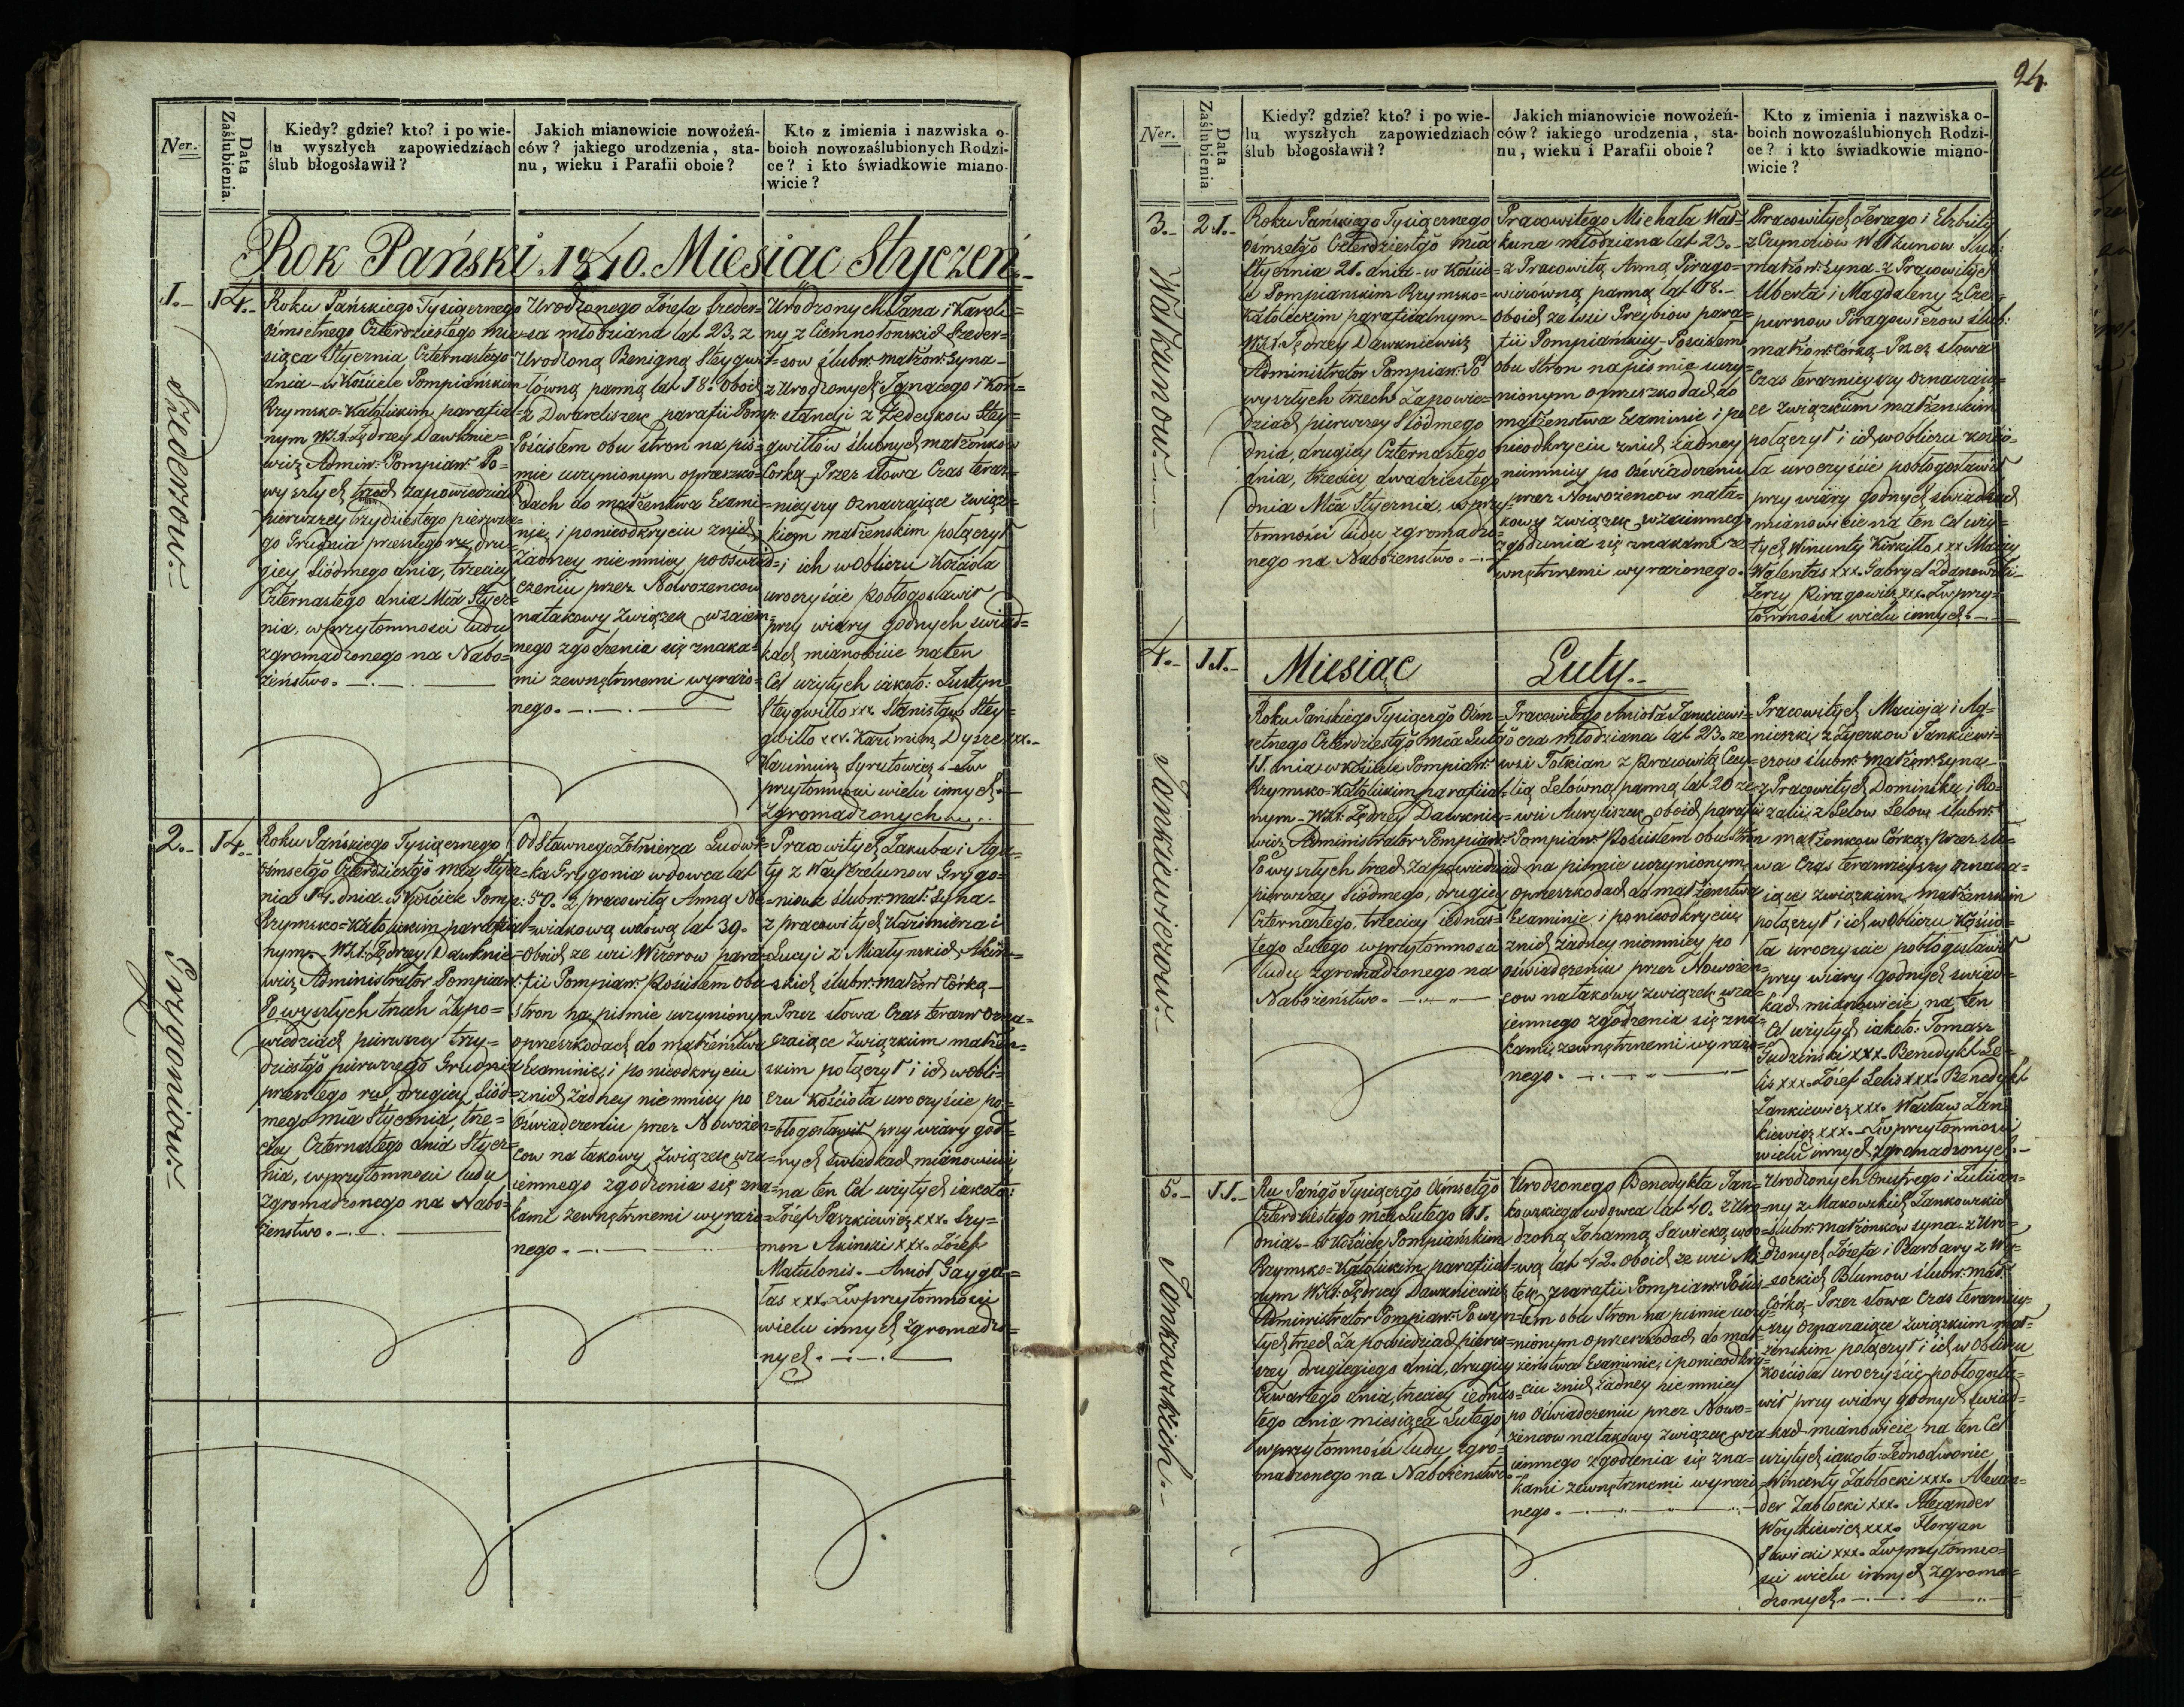 Ner.
Data Zaślubienia.
Kiedy? gdzie? kto? i po wie-
lu wyszłych zapowiedziach
ślub błogosławił?
Jakich mianowicie nowożeń-
ców? jakiego urodzenia, sta-
nu, wieku i Parafii oboie?
Kto z imienia i nazwiska o-
boich nowozaślubionych Rodzi-
ce? i kto świadkowie miano-
wicie?
Rok Pański 1840. Miesiąc Styczeń.-
1.-
14.-
Szederow.-
Roku Pańskiego Tysiącznego
Ośmsetnego Czterdziestego mie-
siąca Stycznia Czternastego
dnia - w Kościele Pompiańskim
Rzymsko=Katolickim parafial=
nym W.X. Jędrzey Dawknie=
wicz Admin: Pompian: Po=
wyszłych trzech zapowiedziach
pierwszey trzydziestego pierwsze=
go Grudnia przeszłego ru, dru=
giey Siódmego dnia, trzeciey
Czternastego dnia Mca Stycz=
nia, w przytomności ludu
zgromadzonego na Nabo=
żeństwo.
Urodzonego Józefa Szeder=
sa młodziana lat 23. z
Urodzoną Benigną Steygwi=
łłówną panną lat 18. Oboich
z Dwareliszek parafii Pomp:
Pościsłem obu stron na piś=
mie uczynionym o przeszko=
dach do małżeństwa Exami=
nie, i ponieodkryciu znich
Żadney niemniey po oświad=
czeniu przez Nowożeńcow
natakowy Związek wzaiem=
nego zgodzenia się znaka=
mi zewnętrznemi wyrażo=
nego.
Urodzonych Jana i Karoli=
ny z Ciemnołońskich Szeder=
sow ślubn: małżon: Syna -
z Urodzonych Ignacego i Kon=
stancji z Rzedeykow Stey=
gwiłłow ślubnych małżonkow
Corką - Przez słowa Czas teraz=
nieyszy Oznaczaiące związ=
kiem małżeńskim połączył
i ich w Obliczu Kościoła
uroczyście Pobłogosławił
przy wiary godnych świad=
kach mianowicie naten
Cel użytych iakoto: Justyn
Steygwiłło xxx. Stanisław Stey=
gwiłło xxx. Kazimierz Dysze xxx.-
Kazimierz Syrutowicz i w
przytomności wielu innych
zgromadzonych
2.-
14.-
Grygoniow.-
Roku Pańskiego Tysiącznego
Ośmsetgo Czterdziestgo Mca Stycz=
nia 14. dnia w Kościele Pomp:
Rzymsko=Katolickim parafial=
nym - W.X. Jędrzey Dawknie=
wicz Administrator Pompian:
Po wyszłych trzech Zapo=
wiedziach pierwszey trzy=
dziestgo pierwszego Grudnia
przeszłego ru, drugiey Siód=
mego mca Stycznia, trze=
ciey Czternastego dnia Stycz=
nia, w przytomności ludu
zgromadzonego na Nabo=
żenstwo.
Odstawnego Żołnierza Ludwi=
ka Grygonia wdowca lat
50. z pracowitą Anną Ne=
wiakową wdową lat 39.
Oboich ze wsi Wiżorow para=
fii Pompian: Pościsłem obu
stron na piśmie uczynionym
o przeszkodach do małżeństwa
Examinie, i po nieodkryciu
znich żadney niemniey po
Oświadczeniu przez Nowożeń=
cow na takowy Związek wza=
iemnego zgodzenia się zna=
kami zewnętrznemi wyrażo=
nego.
Pracowitych Jakuba i Aga=
ty z Waysztelunow Grygo=
niow ślubn: mał: Syna -
z pracowitych Kazimierza i
Lucyi z Miałynskich Akin=
skich ślubn: małżon: Córką -
Przez słowa Czas teraźn: Ozna=
czaiące Związkiem małżeń=
skim połączył i ich w obli=
czu Kościoła uroczyście po=
błogosławił przy wiary god=
nych świadkach mianowicie
na ten Cel użytych iakoto:
Józef Paszkiewicz xxx. Szy=
mon Akinski xxx. Józef
Matulonis. - Anioł Gayga=
łas xxx. I w przytomności
wielu innych zgromadzo=
nych.
24.
Ner.
Data Zaślubienia
Kiedy? gdzie? kto? i po wie-
lu wyszłych zapowiedziach
ślub błogosławił?
Jakich mianowicie nowożeń-
ców? iakiego urodzenia, sta-
nu, wieku i Parafii oboie?
Kto z imienia i nazwiska o-
boich nowozaślubionych Rodzi-
ce? i kto świadkowie miano-
wicie?
3.-
21.-
Wałkunow.-
Roku Pańskiego Tysiącznego
Ośmsetgo Czterdziestgo Mca
Stycznia 21. dnia - w Koście=
le Pompianskim Rzymsko=
Katolickim parafiialnym -
W.X. Jędrzey Dawkniewicz
Administrator Pompian: Po
wyszłych trzech Zapowie=
dziach pierwszey Siódmego
dnia, drugiey Czternastego
dnia, trzeciey dwudziestego
dnia Mca Stycznia, w przy=
tomności ludu zgromadzo=
nego na Nabożenstwo.
Pracowitego Michała Wał=
kuna młodziana lat 23.-
z Pracowitą Anną Pirago=
wiczówną panną lat 18.-
Oboich ze wsi Preybiow para=
fii Pompiańskiey - Pościsłem
obu Stron na piśmie uczy=
nionym o przeszkodach do
małżenstwa Examinie i po
nieodkryciu znich żadney
niemniey po Oświadczeniu
przez Nowożencow nata=
kowy związek wzaiemnego
zgodzenia się znakami ze=
wnętrznemi wyrażonego.
Pracowitych Jerzego i Elżbiety
z Czynciow Wałkunow Ślub:
małżon: Syna - z Pracowitych
Alberta i Magdaleny z Cze=
purnow Piragowiczow ślub:
małżon: Corką - Przez słowa
Czas teraznieyszy oznaczaio=
ce związkiem małżenskim
połączył i ich w obliczu kościo=
ła uroczyście pobłogosławił
przy wiary godnych świadkach
mianowicie na ten Cel uży=
tych Wincenty Kirkiłło xxx Maciey
Walentas xxx. Gabryel Zdanowski -
Jerzy Piragowicz xxx. I w przy=
tomności wielu innych.
4.-
11.-
Jankiewiczow.-
Miesiąc Luty.-
Roku Pańskiego Tysiączgo Ośm=
setnego Czterdziestgo Mca Lutgo
11. dnia w Kościele Pompian:
Rzymsko=Katolickim parafial=
nym - W.X. Jędrzey Dawknie=
wicz Administrator Pompian:
Po wyszłych trzech Zapowiedziach
pierwszey Siódmego, drugiey
Czternastego, trzeciey iednas=
tego Lutego w przytomności
ludu zgromadzonego na
Nabożeństwo.
Pracowitego Anioła Jankiewi=
cza młodziana lat 23. ze
wsi Tolkian z Pracowitą Cecy=
lią Lelówną panną lat 20 ze
wsi Auryliszek oboich parafii
Pompian: Pościsłem obu stron
na piśmie uczynionym
o przeszkodach do małżenstwa
Examinie i ponieodkryciu
znich żadney niemniey po
oświadczeniu przez Nowożen=
cow na takowy związek wza=
iemnego zgodzenia się zna=
kami zewnętrznemi wyrażo=
nego.
Pracowitych Macieja i Ag=
nieszki z Zyerkow Jankiewi=
czow ślubn: małżon: Syna
z Pracowitych Dominika i Ro=
zalii z Lelow Lelow ślubn:
małżonkow Córką; Przez sło=
wa Czas teraznieyszy oznacza=
iące związkiem małżenskim
połączył i ich w Obliczu Kościo=
ła uroczyscie pobłogosławił
przy wiary godnych świad=
kach mianowicie na ten
Cel użytych iakoto: Tomasz
Gudzinski xxx. Benedykt Le=
lis xxx. Józef Lelis xxx. Benedykt
Jankiewicz xxx. Wacław Jan=
kiewicz xxx. I w przytomności
wielu innych zgromadzonych.
5.-
11.-
Jankowskich.-
Ru Pańsgo Tysiączgo Ośmsetgo
Czterdziestego mca Lutego 11.
dnia - w Kościele Pompiańskim
Rzymsko=Katolickim parafial=
nym W.X. Jędrzey Dawkniewicz
Administrator Pompian: Po wysz=
łych trzech Zapowiedziach pierw=
szey drugiegiego dnia, drugiey
Czwartego dnia, trzeciey iednas=
tego dnia miesiąca Lutego
w przytomności ludu zgro=
madzonego na Nabożenstwo.
Urodzonego Benedykta Jan=
kowskiego wdowca lat 40. z Uro=
dzoną Johanną Sawicką wdo=
wą lat 42. Oboich ze wsi
parafii Pompian: Pościs=
łem obu Stron na piśmie uczy=
nionym o przeszkodach do mał=
żenstwa Examinie, i ponieodkry=
ciu znich żadney niemniey
po Oświadczeniu przez Nowo=
żencow na takowy związek wza=
iemnego zgodzenia się zna=
kami zewnętrznemi wyrażo=
nego.
Urodzonych Onufrego i Juliian=
ny z Makowskich Jankowskich
ślubn: małżonkow syna - z Uro=
dzonych Józefa i Barbary z Wy=
sockich Blumow ślubn: mał:
Córką - Przez słowa Czas teraźniey=
szy Oznaczaiące związkiem mał=
żenskim połączył i ich w Obliczu
Kościoła uroczyście pobłogosła=
wił przy wiary godnych świad=
kach mianowicie na ten Cel
użytych iakoto: Jednodworiec
Wincenty Zabłocki xxx. Alexan=
der Zabłocki xxx. Alexander
Woytkiewicz xxx. Floryan
Sawicki xxx. I w przytomno=
ści wielu innych zgroma=
dzonych.